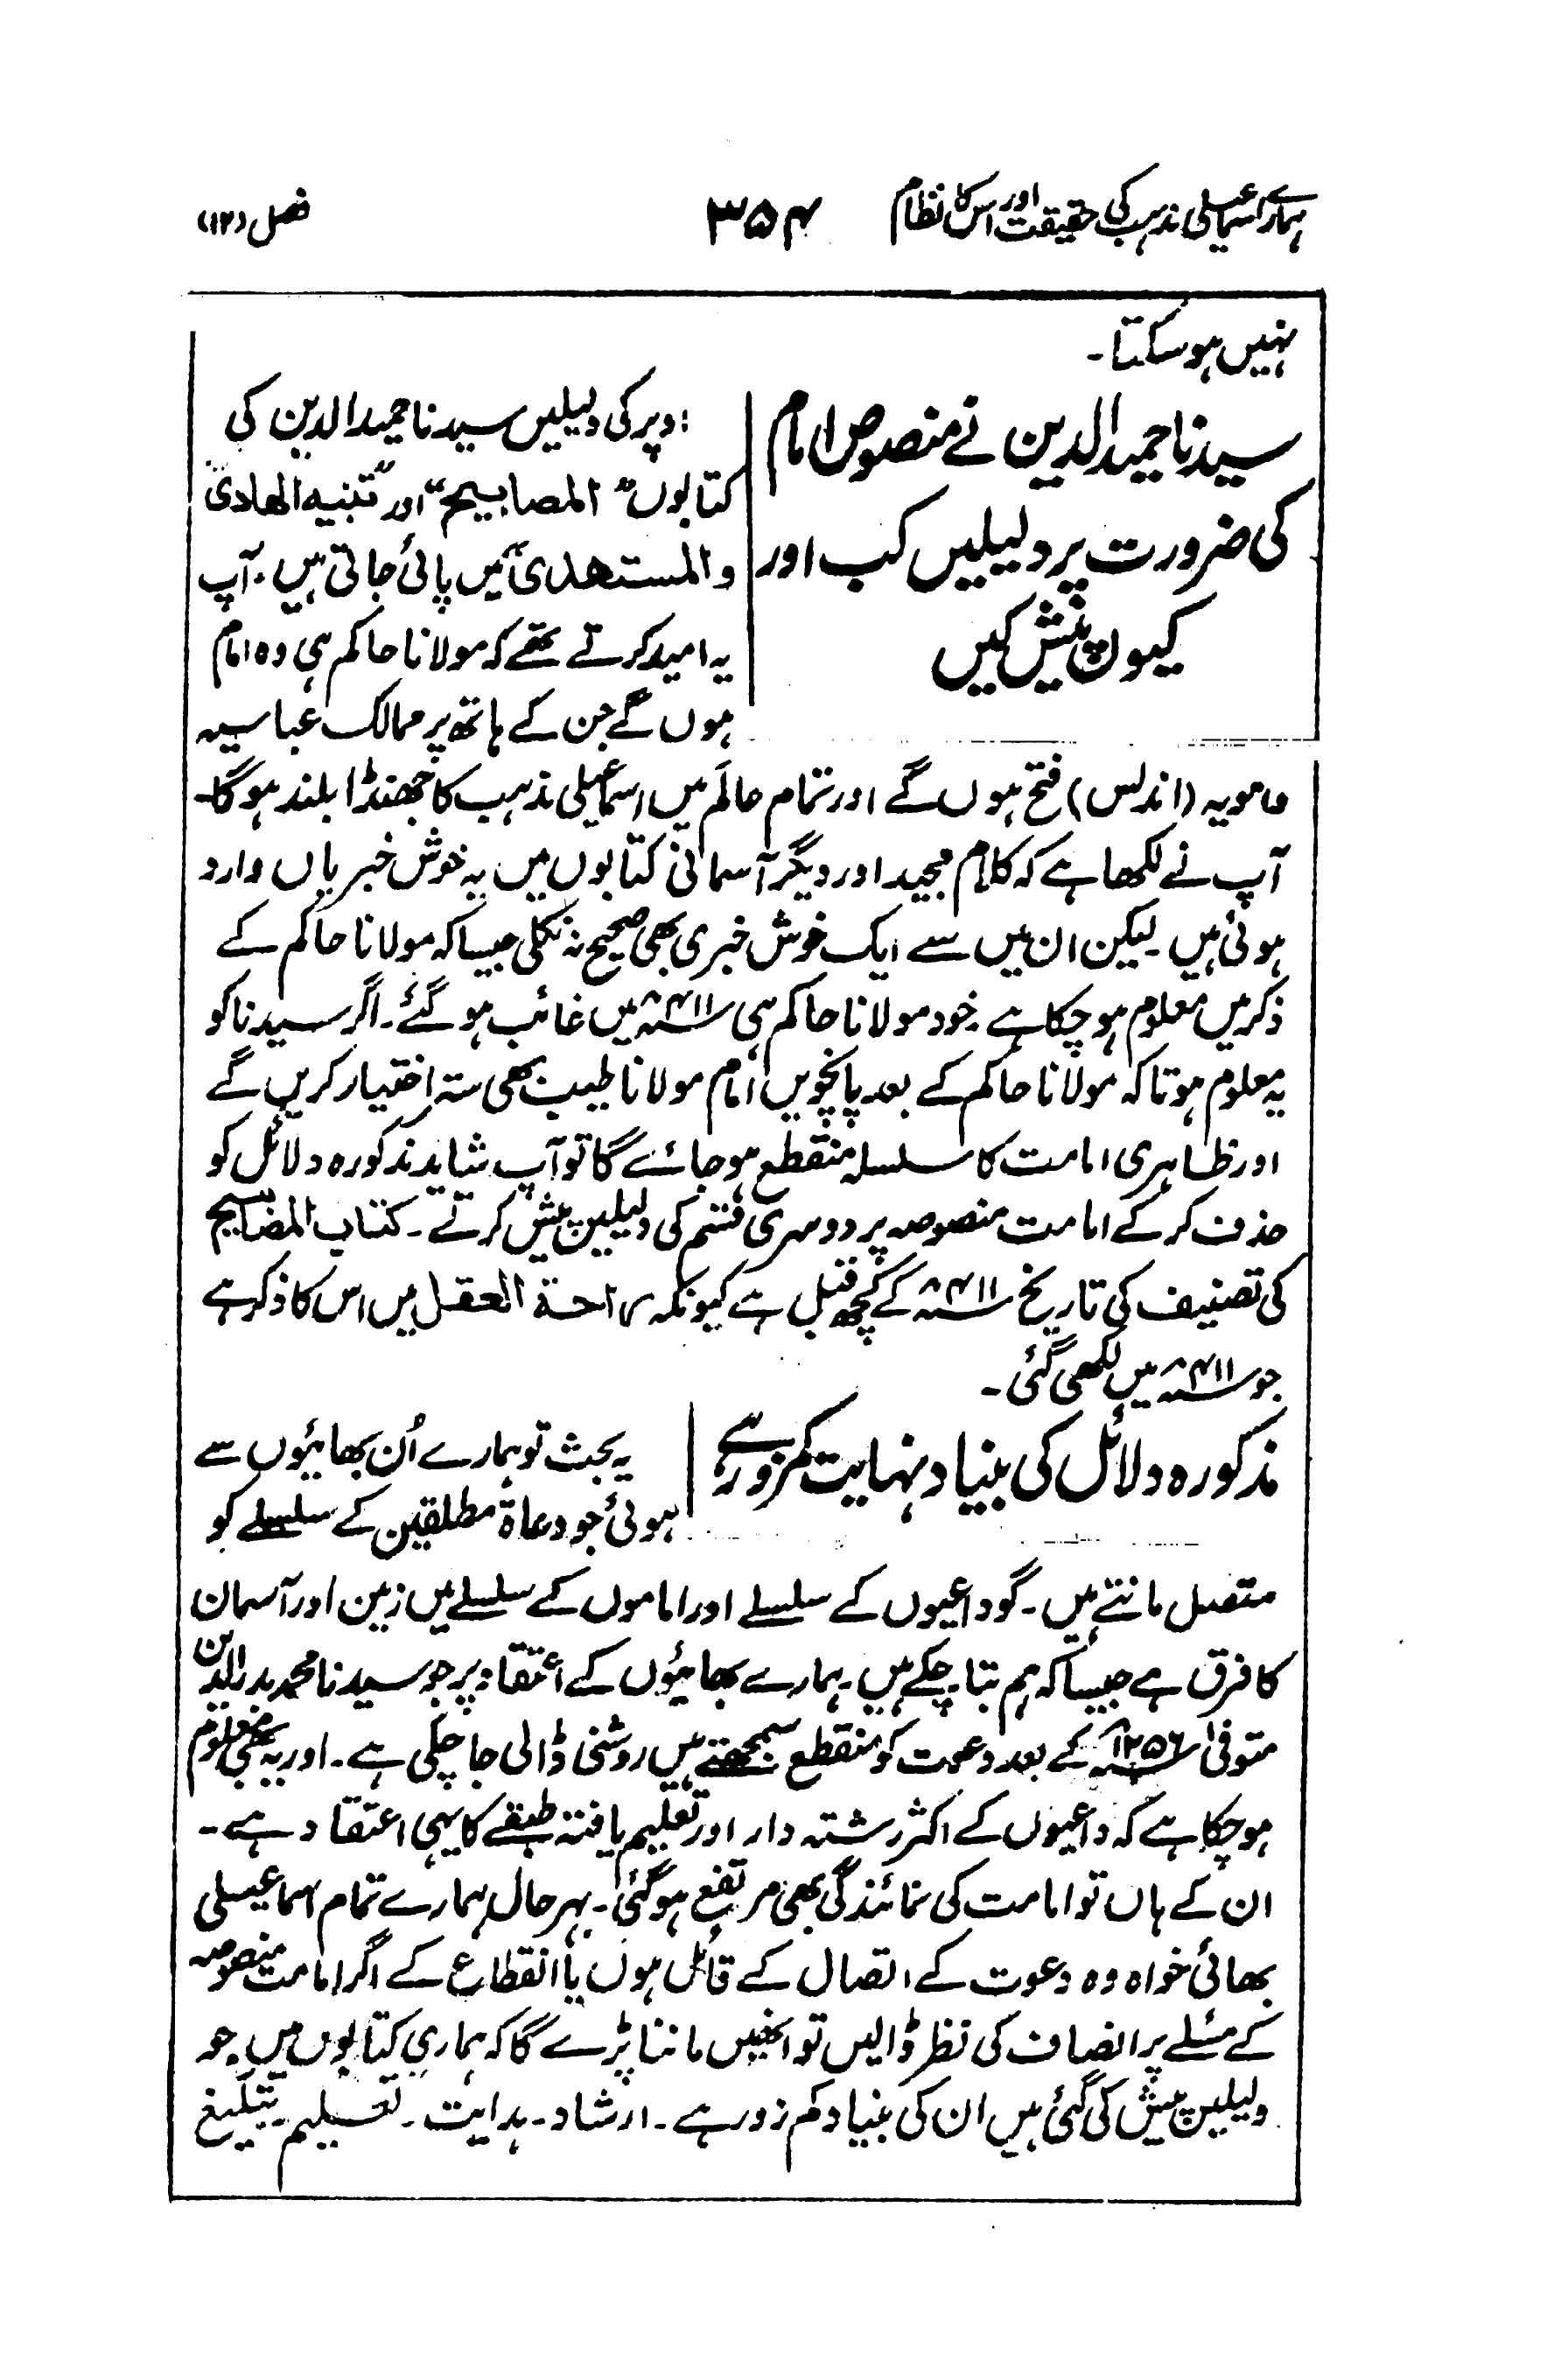 ہمارے اسماعیلی مذہب کی حقیقت اور اس کا نظام ۳۵۴ فصل (۱۲)
نہیں ہو سکتا۔
سیدنا حمید الدین نے منصوص امام
کی ضرورت پر دلیلیں کب اور
کیوں پیش کیں
اوپر کی دلیلیں سیدنا حمید الدین کی
کتابوں "المصابیح" اور "تنبیہ الھادی
والمستھدی" میں پائی جاتی ہیں۔ آپ
یہ امید کرتے تھے کہ مولانا حاکم ہی وہ امام
ہوں گے جن کے ہاتھ پر ممالک عباسیہ
و امویہ (اندلس) فتح ہوں گے اور تمام عالَم میں اسماعیلی مذہب کا جھنڈا بلند ہوگا۔
آپ نے لکھا ہے کہ کلام مجید اور دیگر آسمانی کتابوں میں یہ خوش خبریاں وارد
ہوئی ہیں۔ لیکن ان میں سے ایک خوش خبری بھی صحیح نہ نکلی جیسا کہ مولانا حاکم کے
ذکر میں معلوم ہو چکا ہے۔ خود مولانا حاکم ہی ۴۱۱ھ میں غائب ہو گئے۔ اگر سیدنا کو
یہ معلوم ہوتا کہ مولانا حاکم کے بعد پانچویں امام مولانا طیب بھی ستر اختیار کریں گے
اور ظاہری امامت کا سلسلہ منقطع ہو جائے گا تو آپ شاید مذکورہ دلائل کو
حذف کر کے امامت منصوصہ پر دوسری قسم کی دلیلیں پیش کرتے۔ کتاب المصابیح
کی تصنیف کی تاریخ ۴۱۱ھ کے کچھ قبل ہے کیونکہ راحة العقل میں اس کا ذکر ہے
جو ۴۱۱ھ میں لکھی گئی۔
مذکورہ دلائل کی بنیاد نہایت کمزور ہے
یہ بحث تو ہمارے اُن بھائیوں سے
ہوئی جو دعاۃ مطلقین کے سلسلے کو
متصل مانتے ہیں۔ گو داعیوں کے سلسلے اور اماموں کے سلسلے میں زمین اور آسمان
کا فرق ہے جیسا کہ ہم بتا چکے ہیں۔ ہمارے بھائیوں کے اعتقاد پر جو سیدنا محمد بدر الدین
متوفیٰ ۱۲۵۶ھ کے بعد دعوت کو منقطع سمجھتے ہیں روشنی ڈالی جا چکی ہے۔ اور یہ بھی معلوم
ہو چکا ہے کہ داعیوں کے اکثر رشتہ دار اور تعلیم یافتہ طبقے کا یہی اعتقاد ہے۔
ان کے ہاں تو امامت کی نمائندگی بھی مرتفع ہو گئی۔ بہر حال ہمارے تمام اسماعیلی
بھائی خواہ وہ دعوت کے اتصال کے قائل ہوں یا انقطاع کے اگر امامت منصوصہ
کے مسئلے پر انصاف کی نظر ڈالیں تو انھیں ماننا پڑے گا کہ ہماری کتابوں میں جو
دلیلیں پیش کی گئی ہیں ان کی بنیاد کم زور ہے۔ ارشاد۔ ہدایت۔ تعلیم۔ تبلیغ